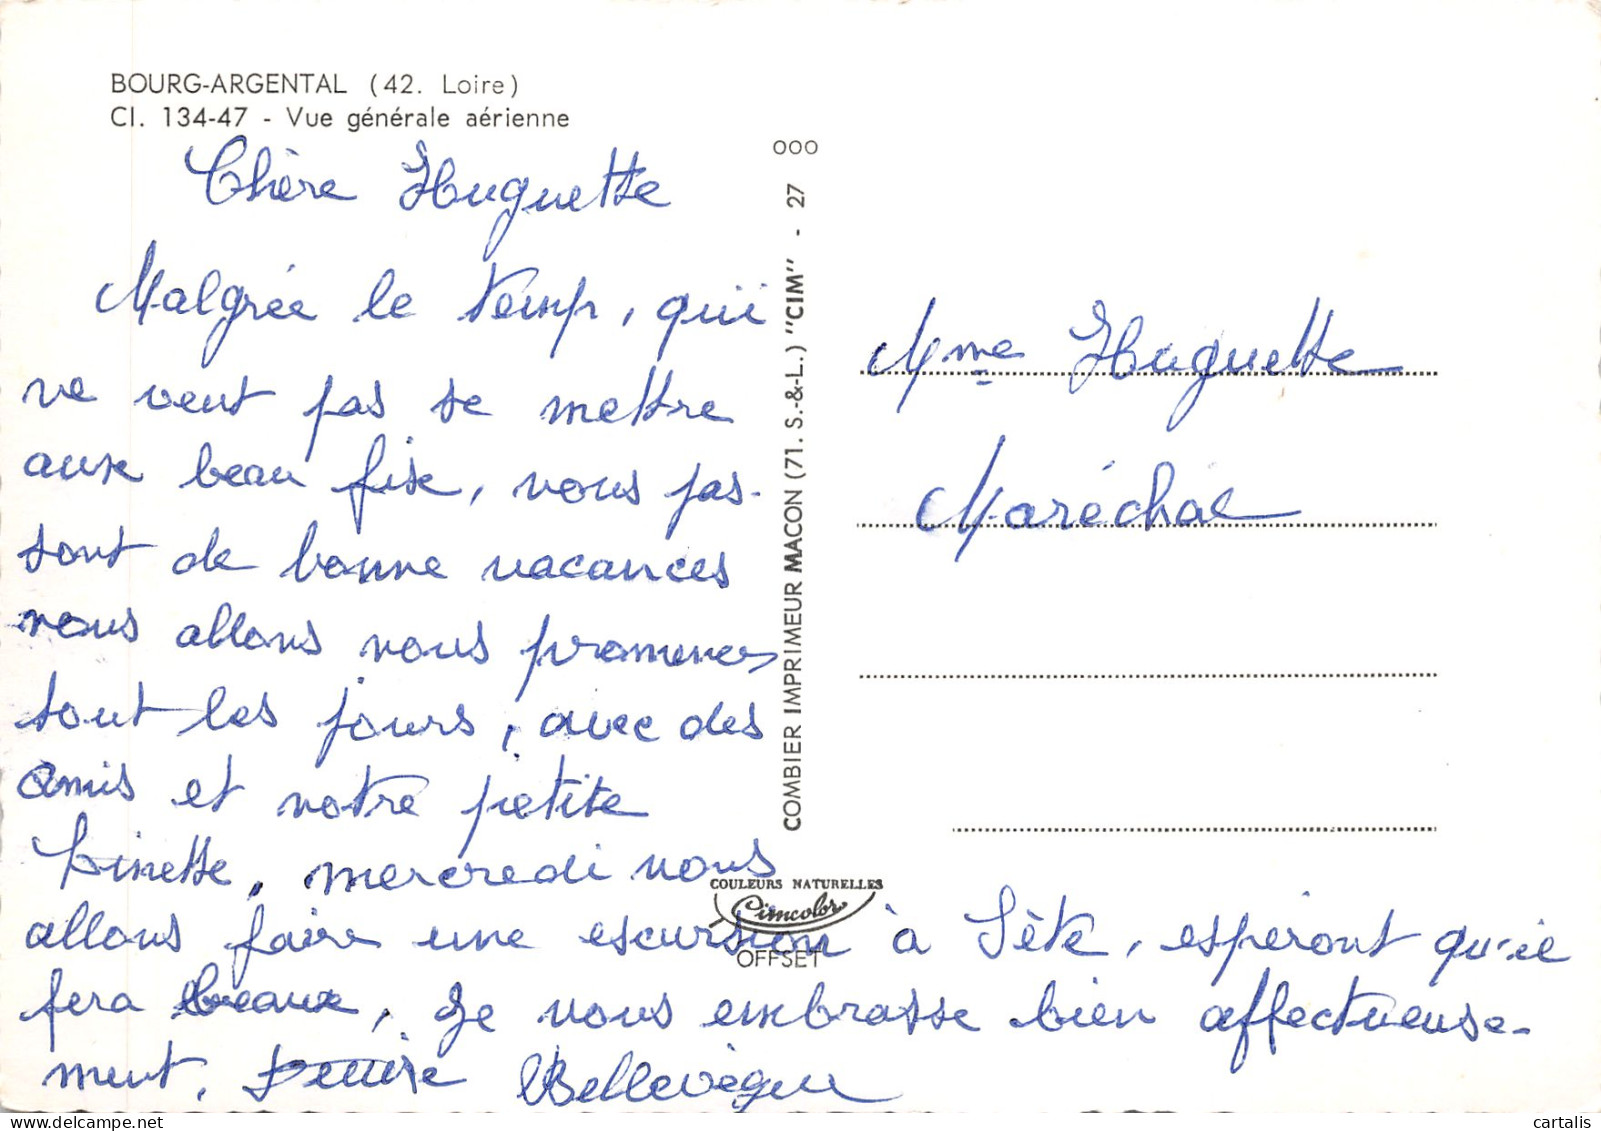 BOURG-ARGENTAL (42. Loire)
Cl. 134-47 - Vue générale aérienne
Chère Huguette
Malgrée le temp, qui
ne veut pas se mettre
aux beau fixe, nous pas-
sont de bonne vacances
nous allons nous promener
tout les jours, avec des
amis et notre petite
Linette, mercredi nous
allons faire une escursion à Sète, espéront qu'il
fera beaux, je vous embrasse bien affectueuse-
ment. Bellevègue
OOO
COMBIER IMPRIMEUR MACON (71. S.-&-L.) "CIM" - 27
COULEURS NATURELLES
Cimcolor
OFFSET
Mme Huguette
Maréchal
cartalis
www.delcampe.net